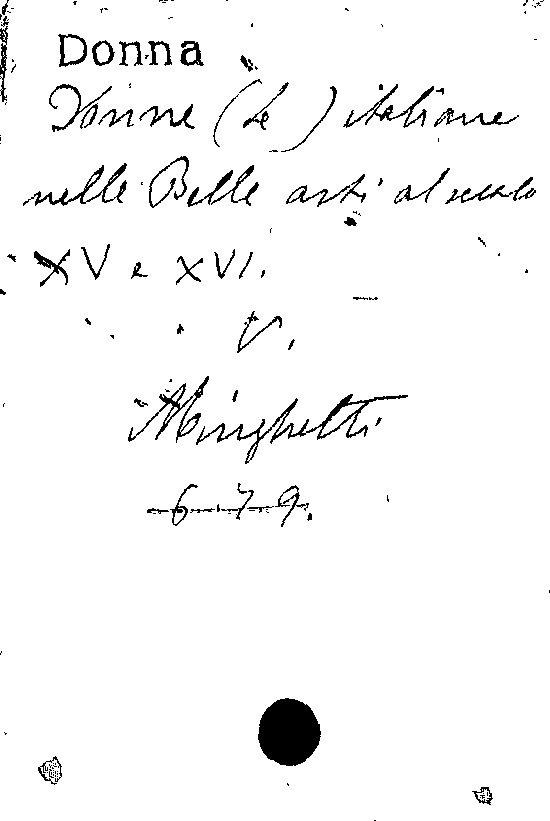 Donna
Donne (Le) italiane
nelle Belle arti al secolo
XV e XVI.
V.
Minghetti
6 7 9.